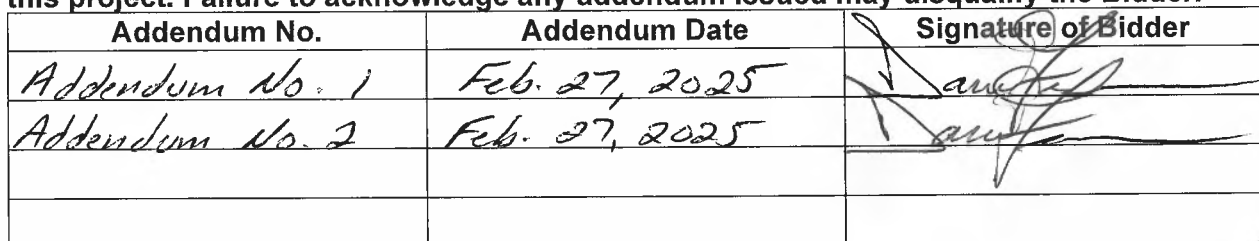 this project. Failure to acknowledge any addendum issued may disqualify the Bidder.
Addendum No. Addendum Date Signature of Bidder
Addendum No. 1 Feb. 27, 2025
Addendum No. 2 Feb. 27, 2025